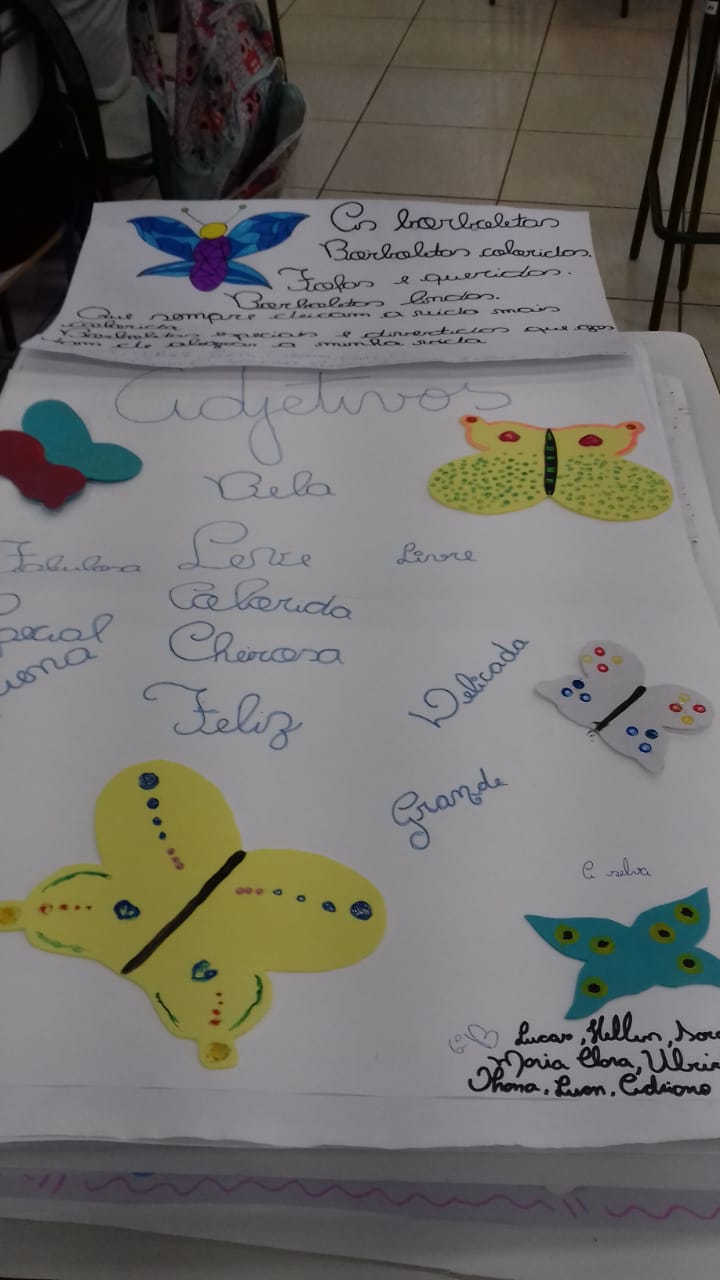 As borboletas
Borboletas coloridas.
Fofas e queridas.
Borboletas lindas.
Que sempre deixam a vida mais
colorida
Borboletas especiais e divertidas que
a minha vida
Adjetivos
Bela
Fabulosa Leve Livre
Colorida
pecial Cheirosa
Delicada
Feliz
Grande
A selva
Lucas, Hellen,
Maria Clara,
Jhona, Luan, Adriano